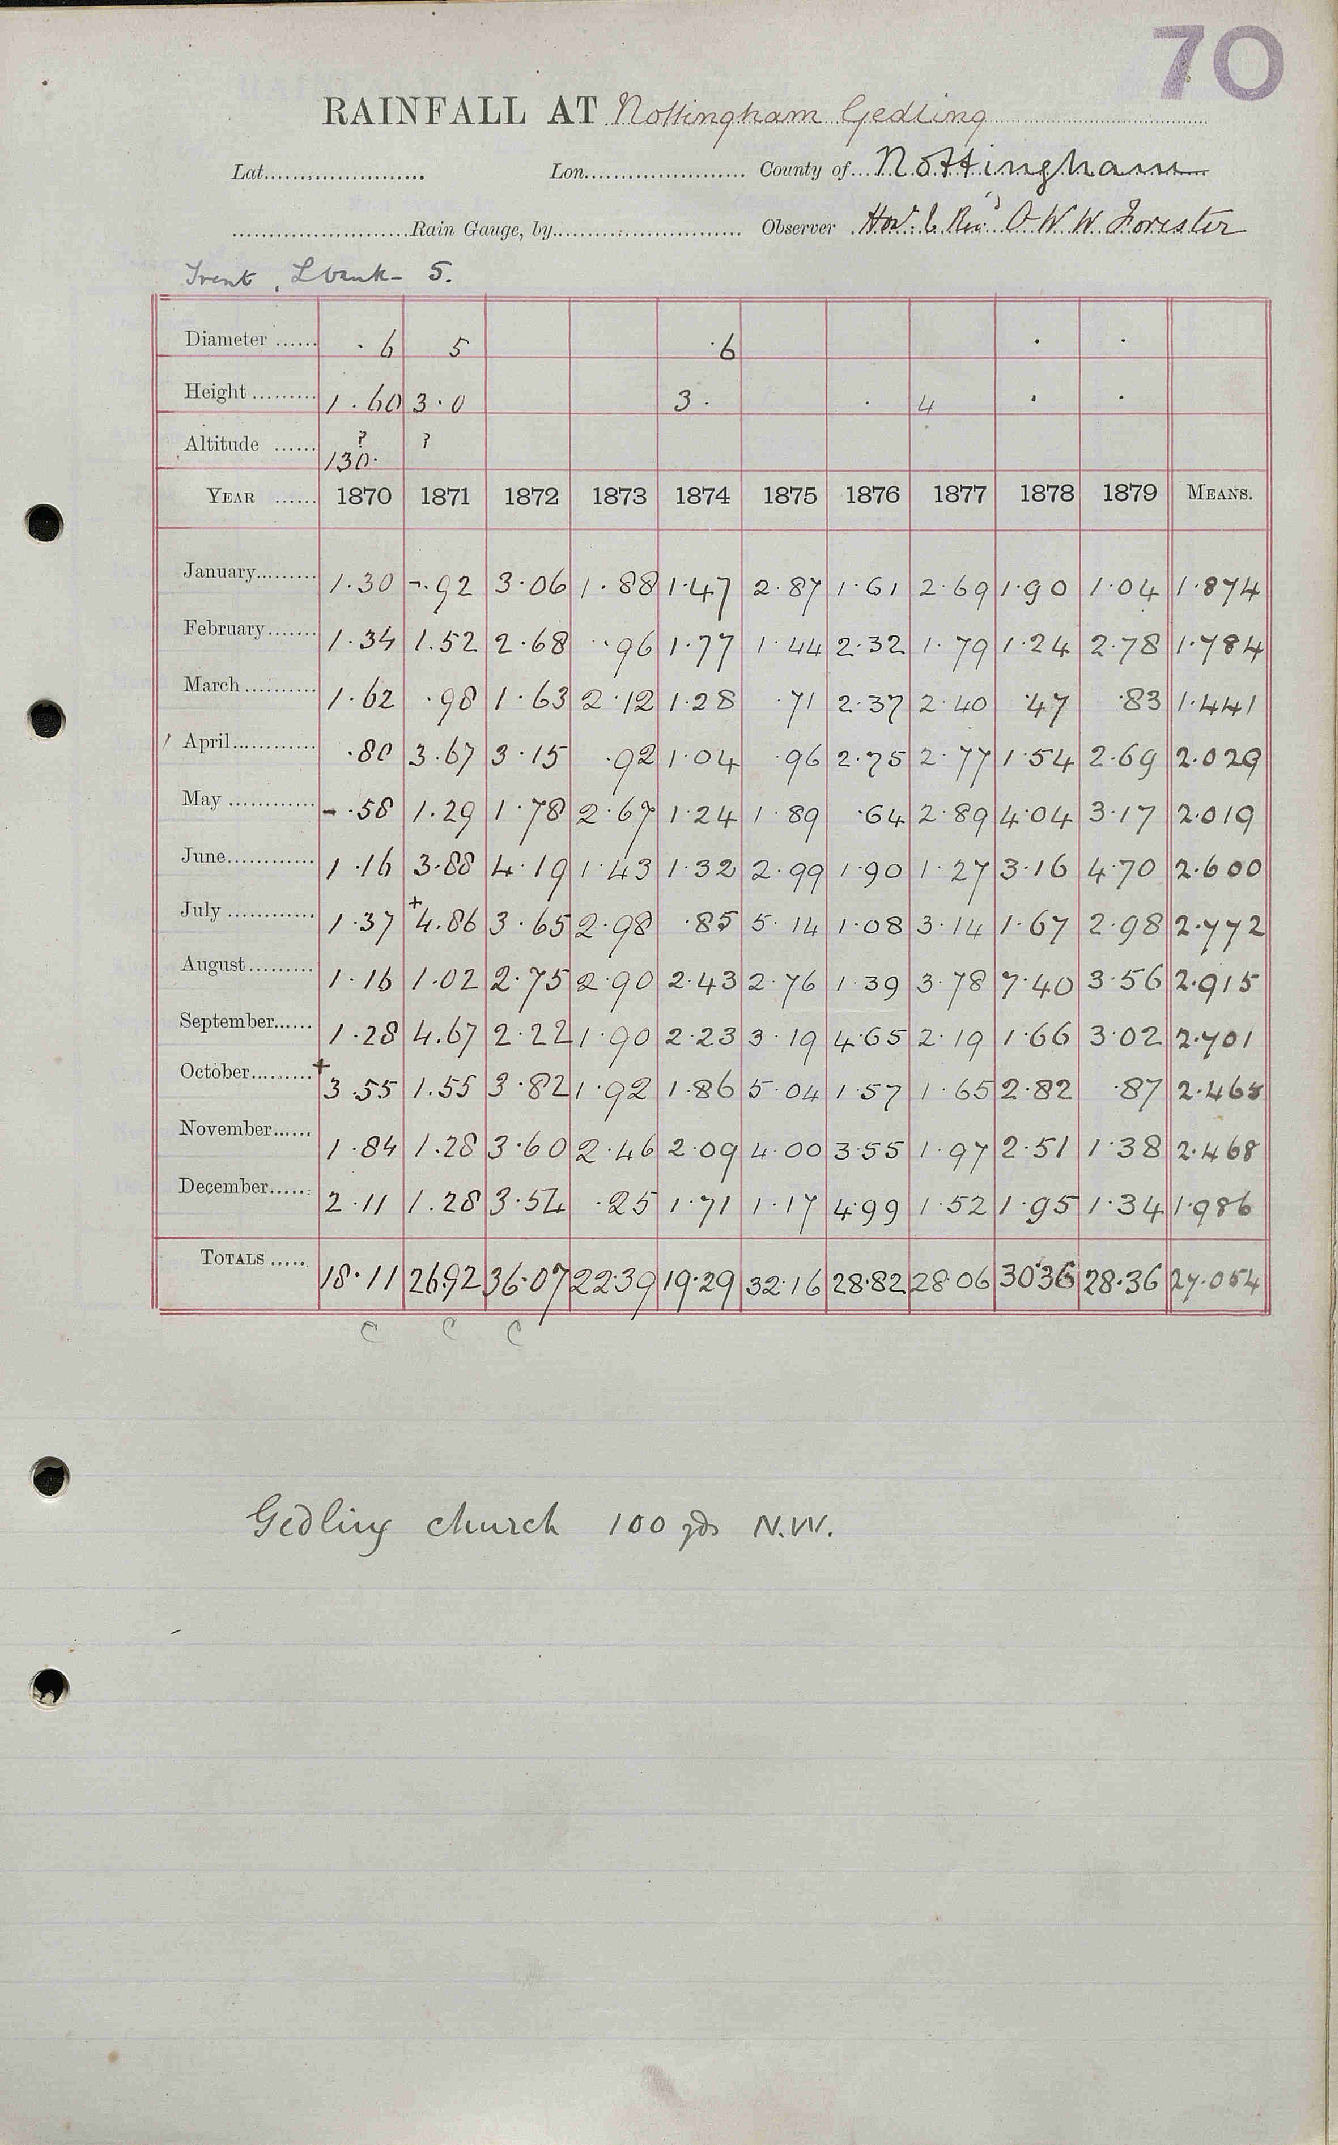 70
RAINFALL AT Nottingham Gedling
Lat...................... Lon...................... County of... Nottingham
........................Rain Gauge, by........................ Observer Hon. & Revd. O W W Forester
Trent, L bank - 5.
Diameter ...... · 6 5 · 6 · ·
Height ......... 1 · 60 3 · 0 3 · · 4 · ·
Altitude ...... ? 130· ?
YEAR ...... 1870 1871 1872 1873 1874 1875 1876 1877 1878 1879 MEANS.
January......... 1·30 -·92 3·06 1·88 1·47 2·87 1·61 2·69 1·90 1·04 1·874
February....... 1·34 1.52 2·68 ·96 1·77 1·44 2·32 1·79 1·24 2·78 1·784
March .......... 1·62 ·98 1·63 2·12 1·28 ·71 2·37 2·40 ·47 ·83 1·441
April............ ·80 3·67 3·15 ·92 1·04 ·96 2·75 2·77 1·54 2·69 2·029
May ............ - ·58 1·29 1·78 2·67 1·24 1·89 ·64 2·89 4·04 3·17 2·019
June............ 1·16 3·88 4·19 1·43 1·32 2·99 1·90 1·27 3·16 4·70 2·600
July ............ 1·37 +4·86 3·65 2·98 ·85 5·14 1·08 3·14 1·67 2·98 2·772
August......... 1·16 1·02 2·75 2·90 2·43 2·76 1·39 3·78 7·40 3·56 2·915
September...... 1·28 4·67 2·22 1·90 2·23 3·19 4·65 2·19 1·66 3·02 2·701
October......... +3·55 1·55 3·82 1·92 1·86 5·04 1·57 1·65 2·82 ·87 2·465
November...... 1·84 1·28 3·60 2·46 2·09 4·00 3·55 1·97 2·51 1·38 2·468
December...... 2·11 1·28 3·54 ·25 1·71 1·17 4·99 1·52 1·95 1·34 1·986
TOTALS ..... 18·11 26.92 36·07 22.39 19·29 32·16 28·82 28·06 30·36 28·36 27·054
C C C
Gedling church 100 yds N.W.